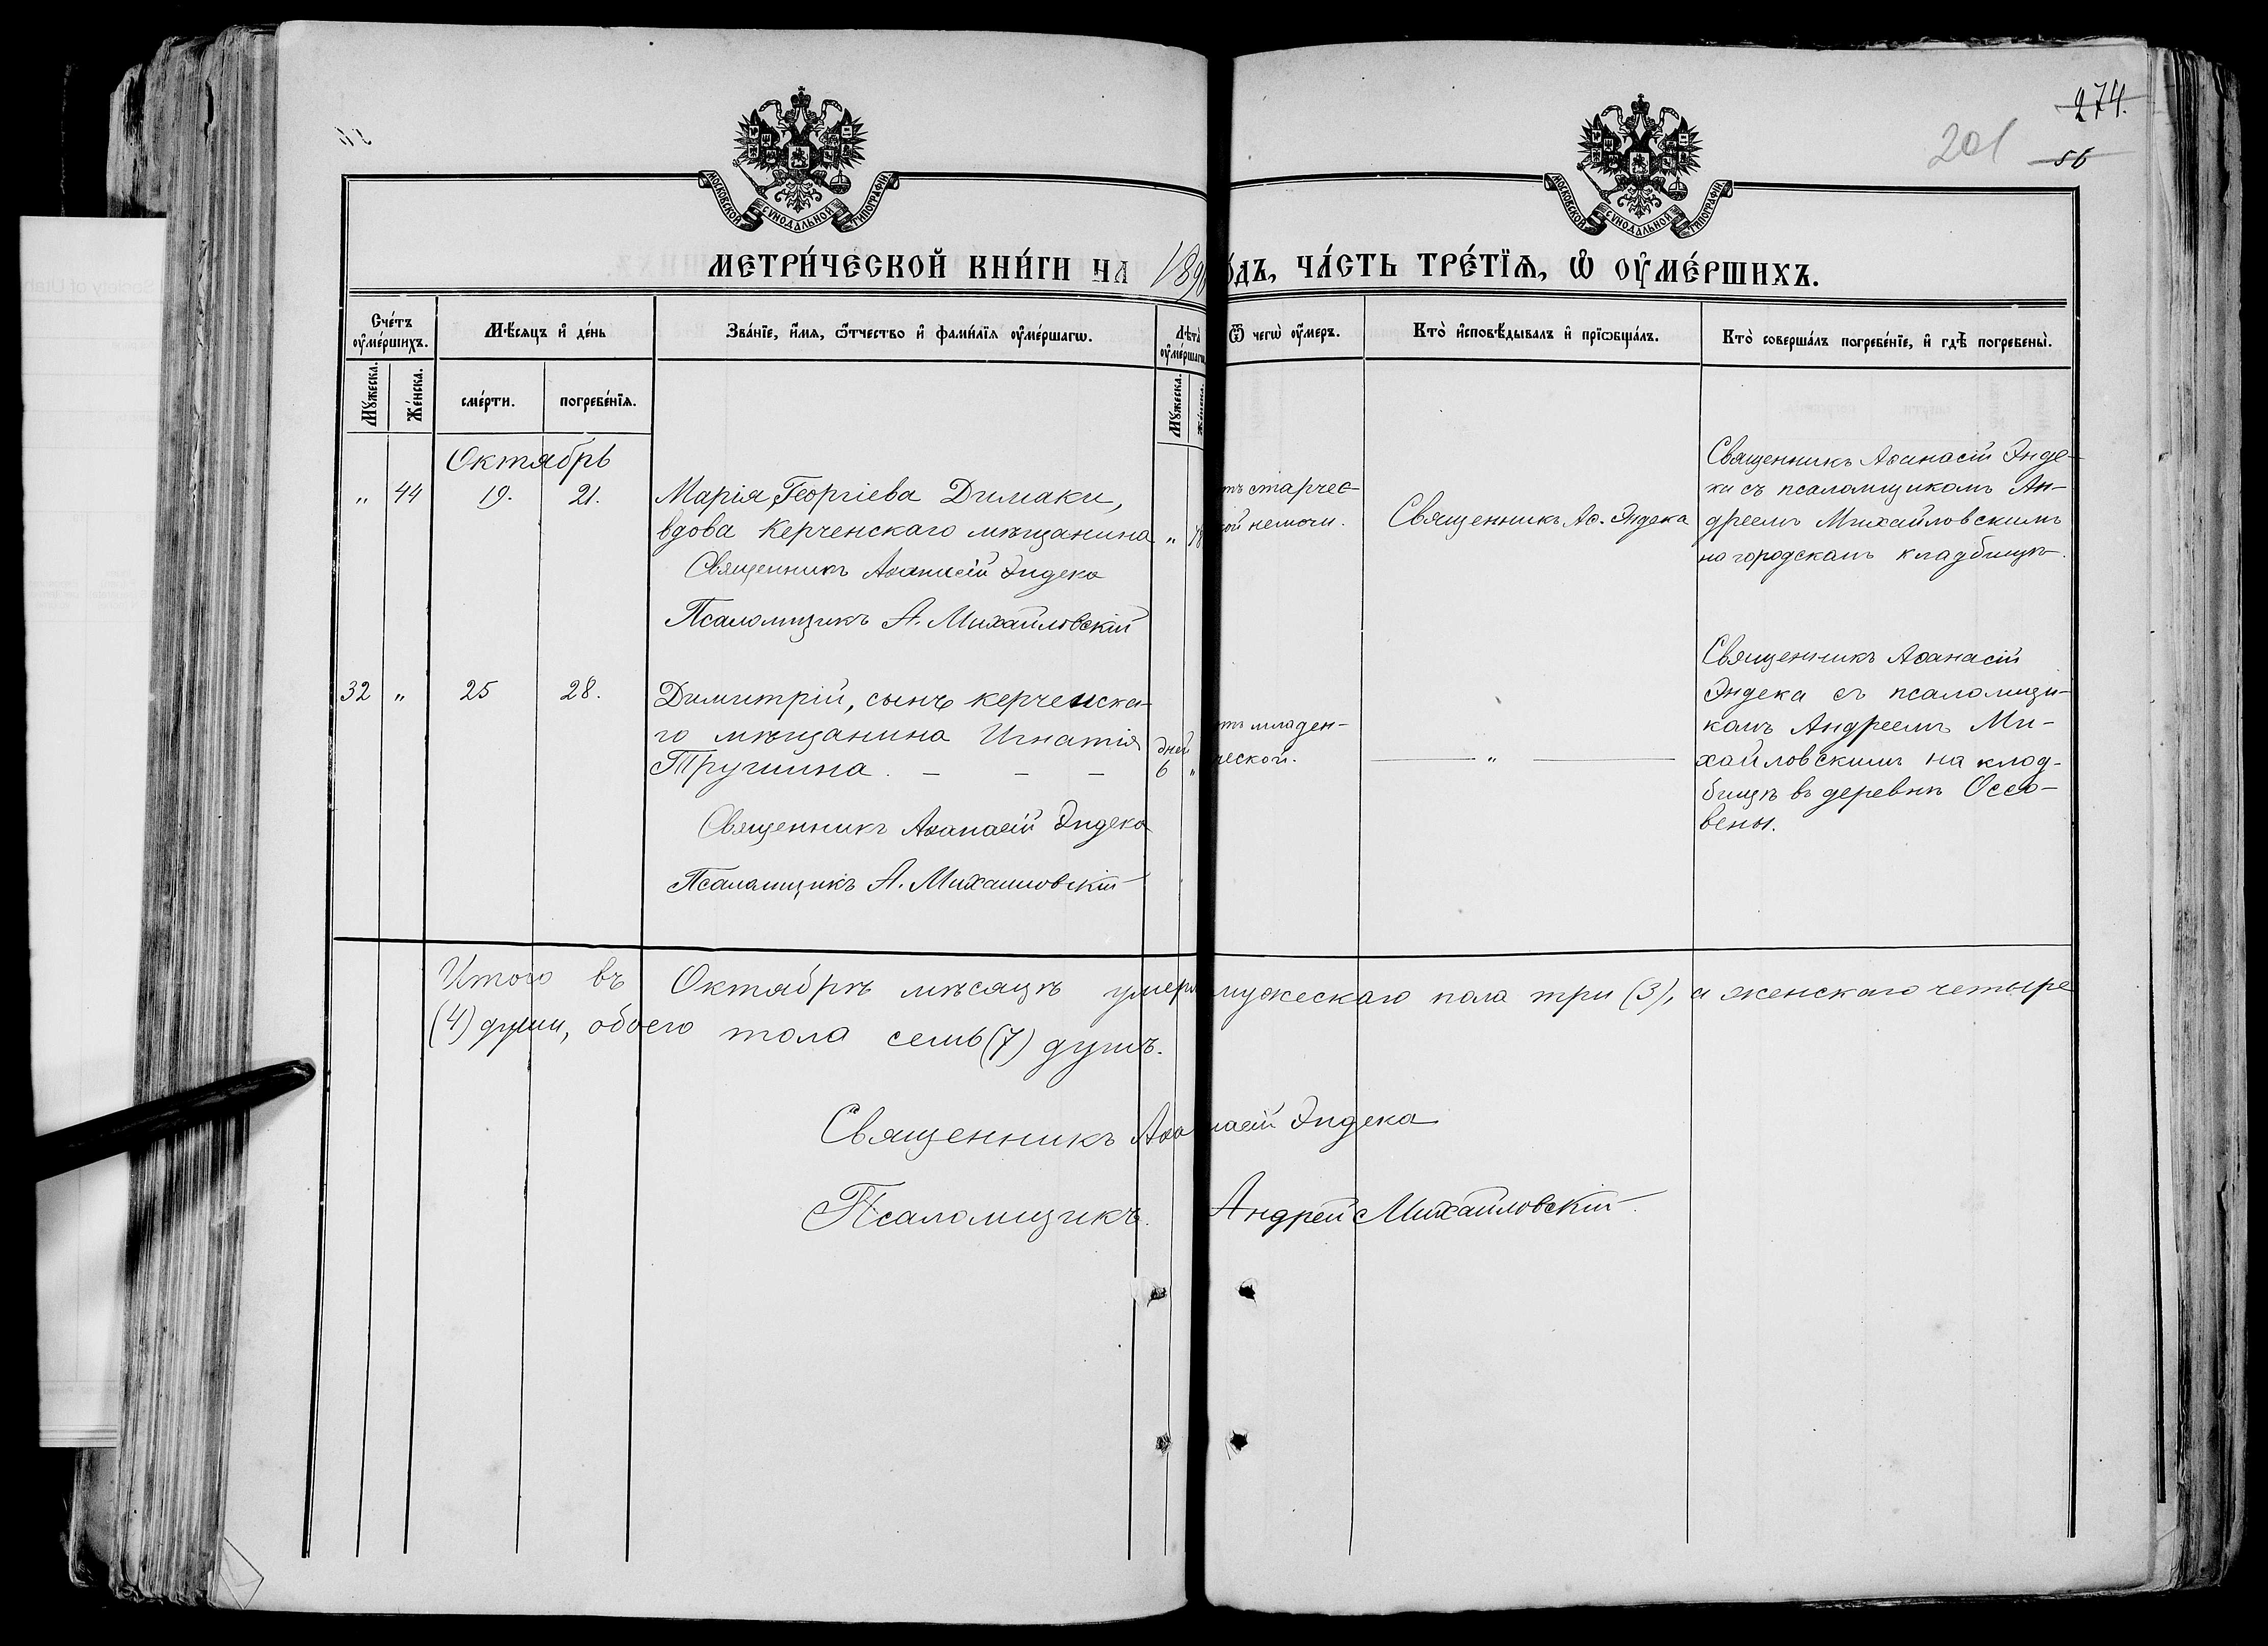 274.
201 56
МОСКОВСКОЙ СѴНОДАЛЬНОЙ ТИПОГРАФІИ
МОСКОВСКОЙ СѴНОДАЛЬНОЙ ТИПОГРАФІИ
МЕТРИ́ЧЕСКОЙ КНИ́ГИ НА 189 ОДЪ, ЧА́СТЬ ТРЕ́ТІѦ, Ѡ ОУМЕ́РШИХЪ.
Сче́тъ оуме́ршихъ.
Мꙋ́жеска.
Же́нска.
Мѣ́сяцъ и҆ де́нь
сме́рти.
погребе́нїѧ.
Зва́нїе, и҆́мѧ, ѻ҆́тчество и҆ фами́лїѧ оу҆ме́ршагѡ.
Лѣ́та оу҆ме́ршагѡ
Мꙋ́жеска.
Же́нска.
Ѿ чегѡ̀ оу҆́меръ.
Кто̀ и҆сповѣ́дывалъ и҆ прїѡбща́лъ.
Кто̀ соверша́лъ погребе́нїе, и҆ гдѣ̀ погребены̀.
Октябрь
„ 44 19. 21.
Марія Георгіева Димаки,
вдова Керченскаго мѣщанина „
Священникъ Аѳанасій Эндека
Псаломщикъ А. Михайловскій
тъ старчес-
кой немочи.
Священникъ Аѳ. Эндека
Священникъ Аѳанасій Энде-
ка съ псаломщикомъ Ан-
дреемъ Михайловскимъ
на городскомъ кладбищѣ.
32 „ 25 28.
Димитрій, сынъ керченска-
го мѣщанина Игнатія
Тручина. – – –
дней
6 „
Священникъ Аѳанасій Эндека
Псаломщикъ А. Михайловскій
тъ младен-
ческой.
„
Священникъ Аѳанасій
Эндека съ псаломщи-
комъ Андреемъ Ми-
хайловскимъ на клад-
бищѣ въ деревнѣ Оссо-
вены.
Итого въ Октябрѣ мѣсяцѣ умерло мужескаго пола три (3), а женскаго четыре
(4) души, обоего пола семь (7) душъ.
Священникъ Аѳанасій Эндека
Псаломщикъ Андрей Михайловскій